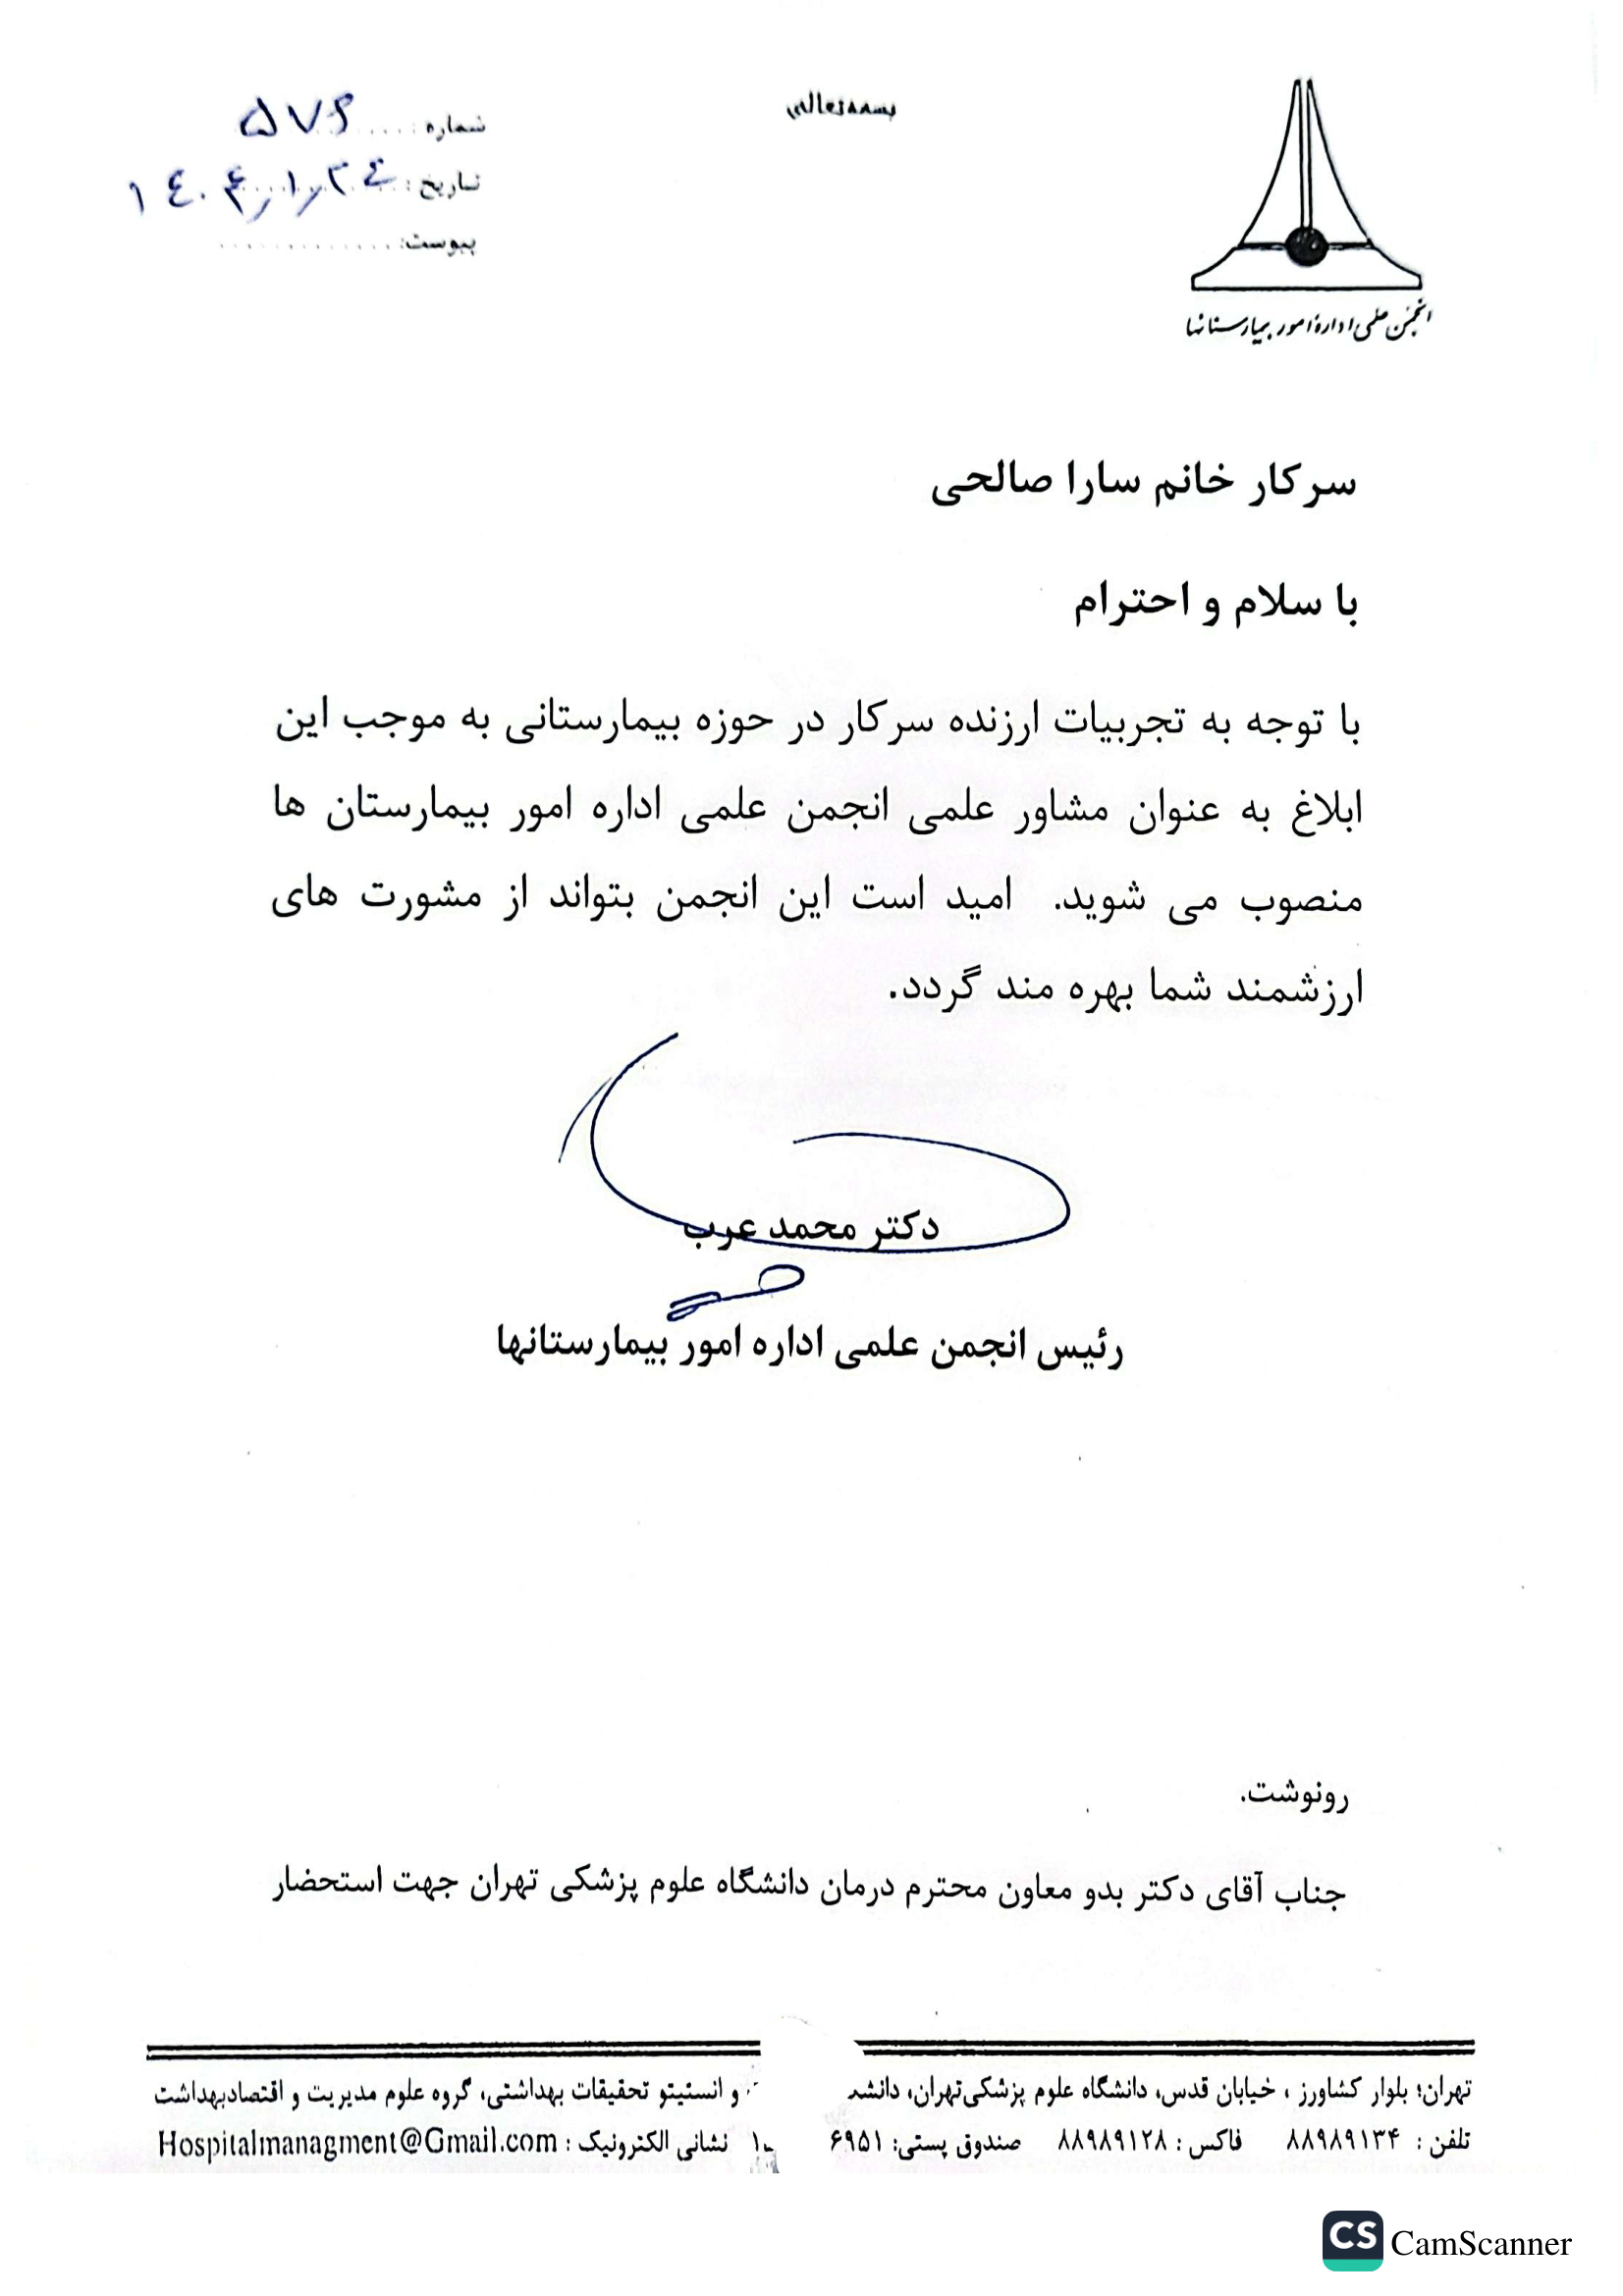 بسمه‌تعالی
شماره: ۵۷۶
تاریخ: ۱۴۰۴/۱/۲۴
پیوست:
انجمن علمی اداره امور بیمارستانها
سرکار خانم سارا صالحی
با سلام و احترام
با توجه به تجربیات ارزنده سرکار در حوزه بیمارستانی به موجب این
ابلاغ به عنوان مشاور علمی انجمن علمی اداره امور بیمارستان ها
منصوب می شوید. امید است این انجمن بتواند از مشورت های
ارزشمند شما بهره مند گردد.
دکتر محمد عرب
رئیس انجمن علمی اداره امور بیمارستانها
رونوشت.
جناب آقای دکتر بدو معاون محترم درمان دانشگاه علوم پزشکی تهران جهت استحضار
تهران؛ بلوار کشاورز ، خیابان قدس، دانشگاه علوم پزشکی‌تهران، و انستیتو تحقیقات بهداشتی، گروه علوم مدیریت و اقتصادبهداشت
تلفن : ۸۸۹۸۹۱۳۴ فاکس : ۸۸۹۸۹۱۲۸ صندوق پستی: ۶۹۵۱ نشانی الکترونیک : Hospitalmanagment@Gmail.com
CS CamScanner